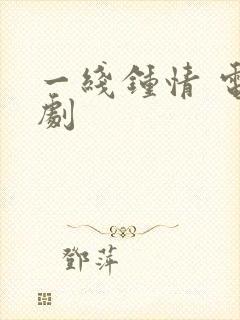 一綫鍾情 電
劇
鄧萍